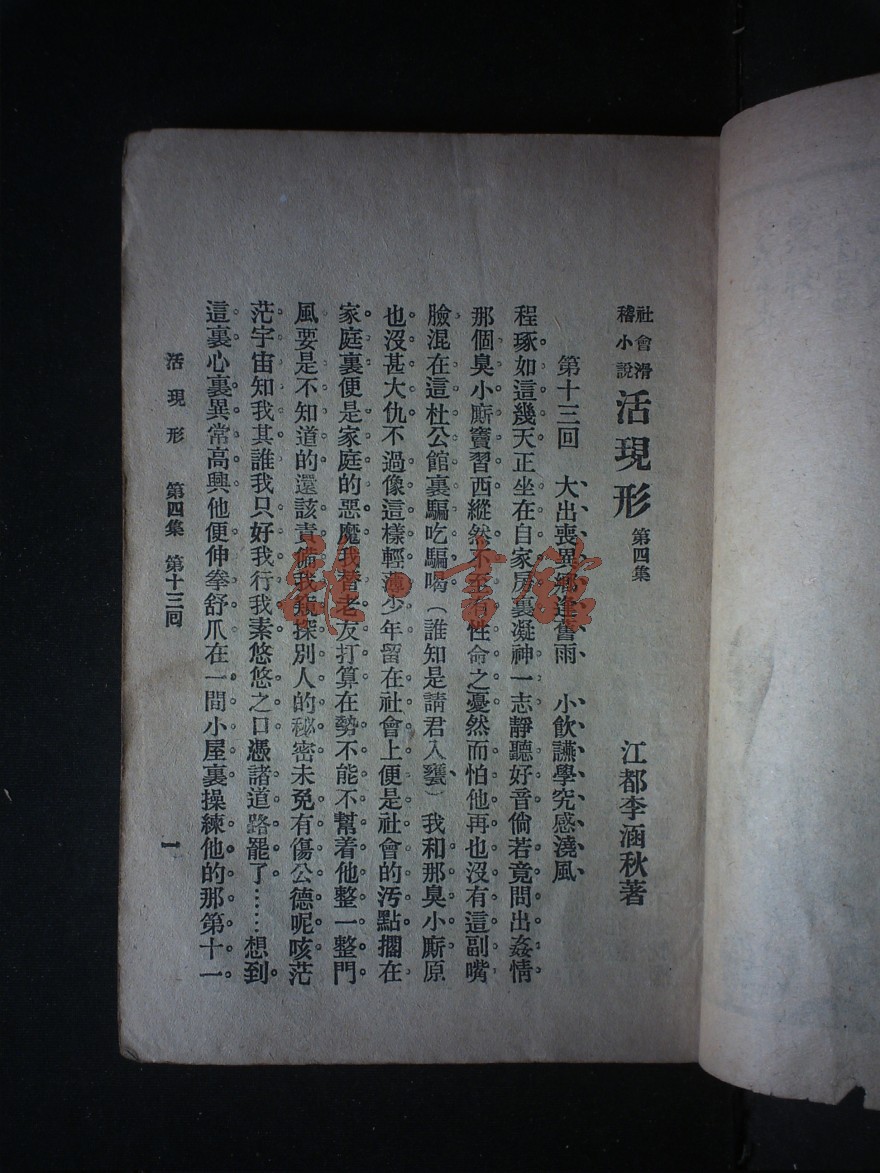 社會滑稽小說 活現形 第四集
江都李涵秋著
第十三回 大出喪異鄉逢舊雨 小飲讌學究感澆風
程琢如這幾天正坐在自家房裏凝神一志靜聽好音倘若竟問出姦情
那個臭小廝竇習西縱然不至有性命之憂然而怕他再也沒有這副嘴
臉混在這杜公館裏騙吃騙喝（誰知是請君入甕）我和那臭小廝原
也沒甚大仇不過像這樣輕薄少年留在社會上便是社會的汚點擱在
家庭裏便是家庭的惡魔我替老友打算在勢不能不幫着他整一整門
風要是不知道的還該責備我窺探別人的秘密未免有傷公德呢咳茫
茫宇宙知我其誰我只好我行我素悠悠之口憑諸道路罷了……想到
這裏心裏異常高興他便伸拳舒爪在一間小屋裏操練他的那第十一
活現形 第四集 第十三回
一